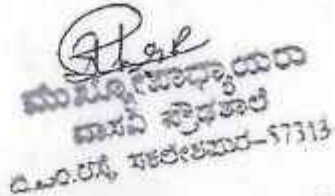 ಮುಖ್ಯೋಪಾಧ್ಯಾಯರು
ವಾಸವಿ ಪ್ರೌಢಶಾಲೆ
ಬಿ.ಎಂ.ರಸ್ತೆ, ಸಕಲೇಶಪುರ-57313